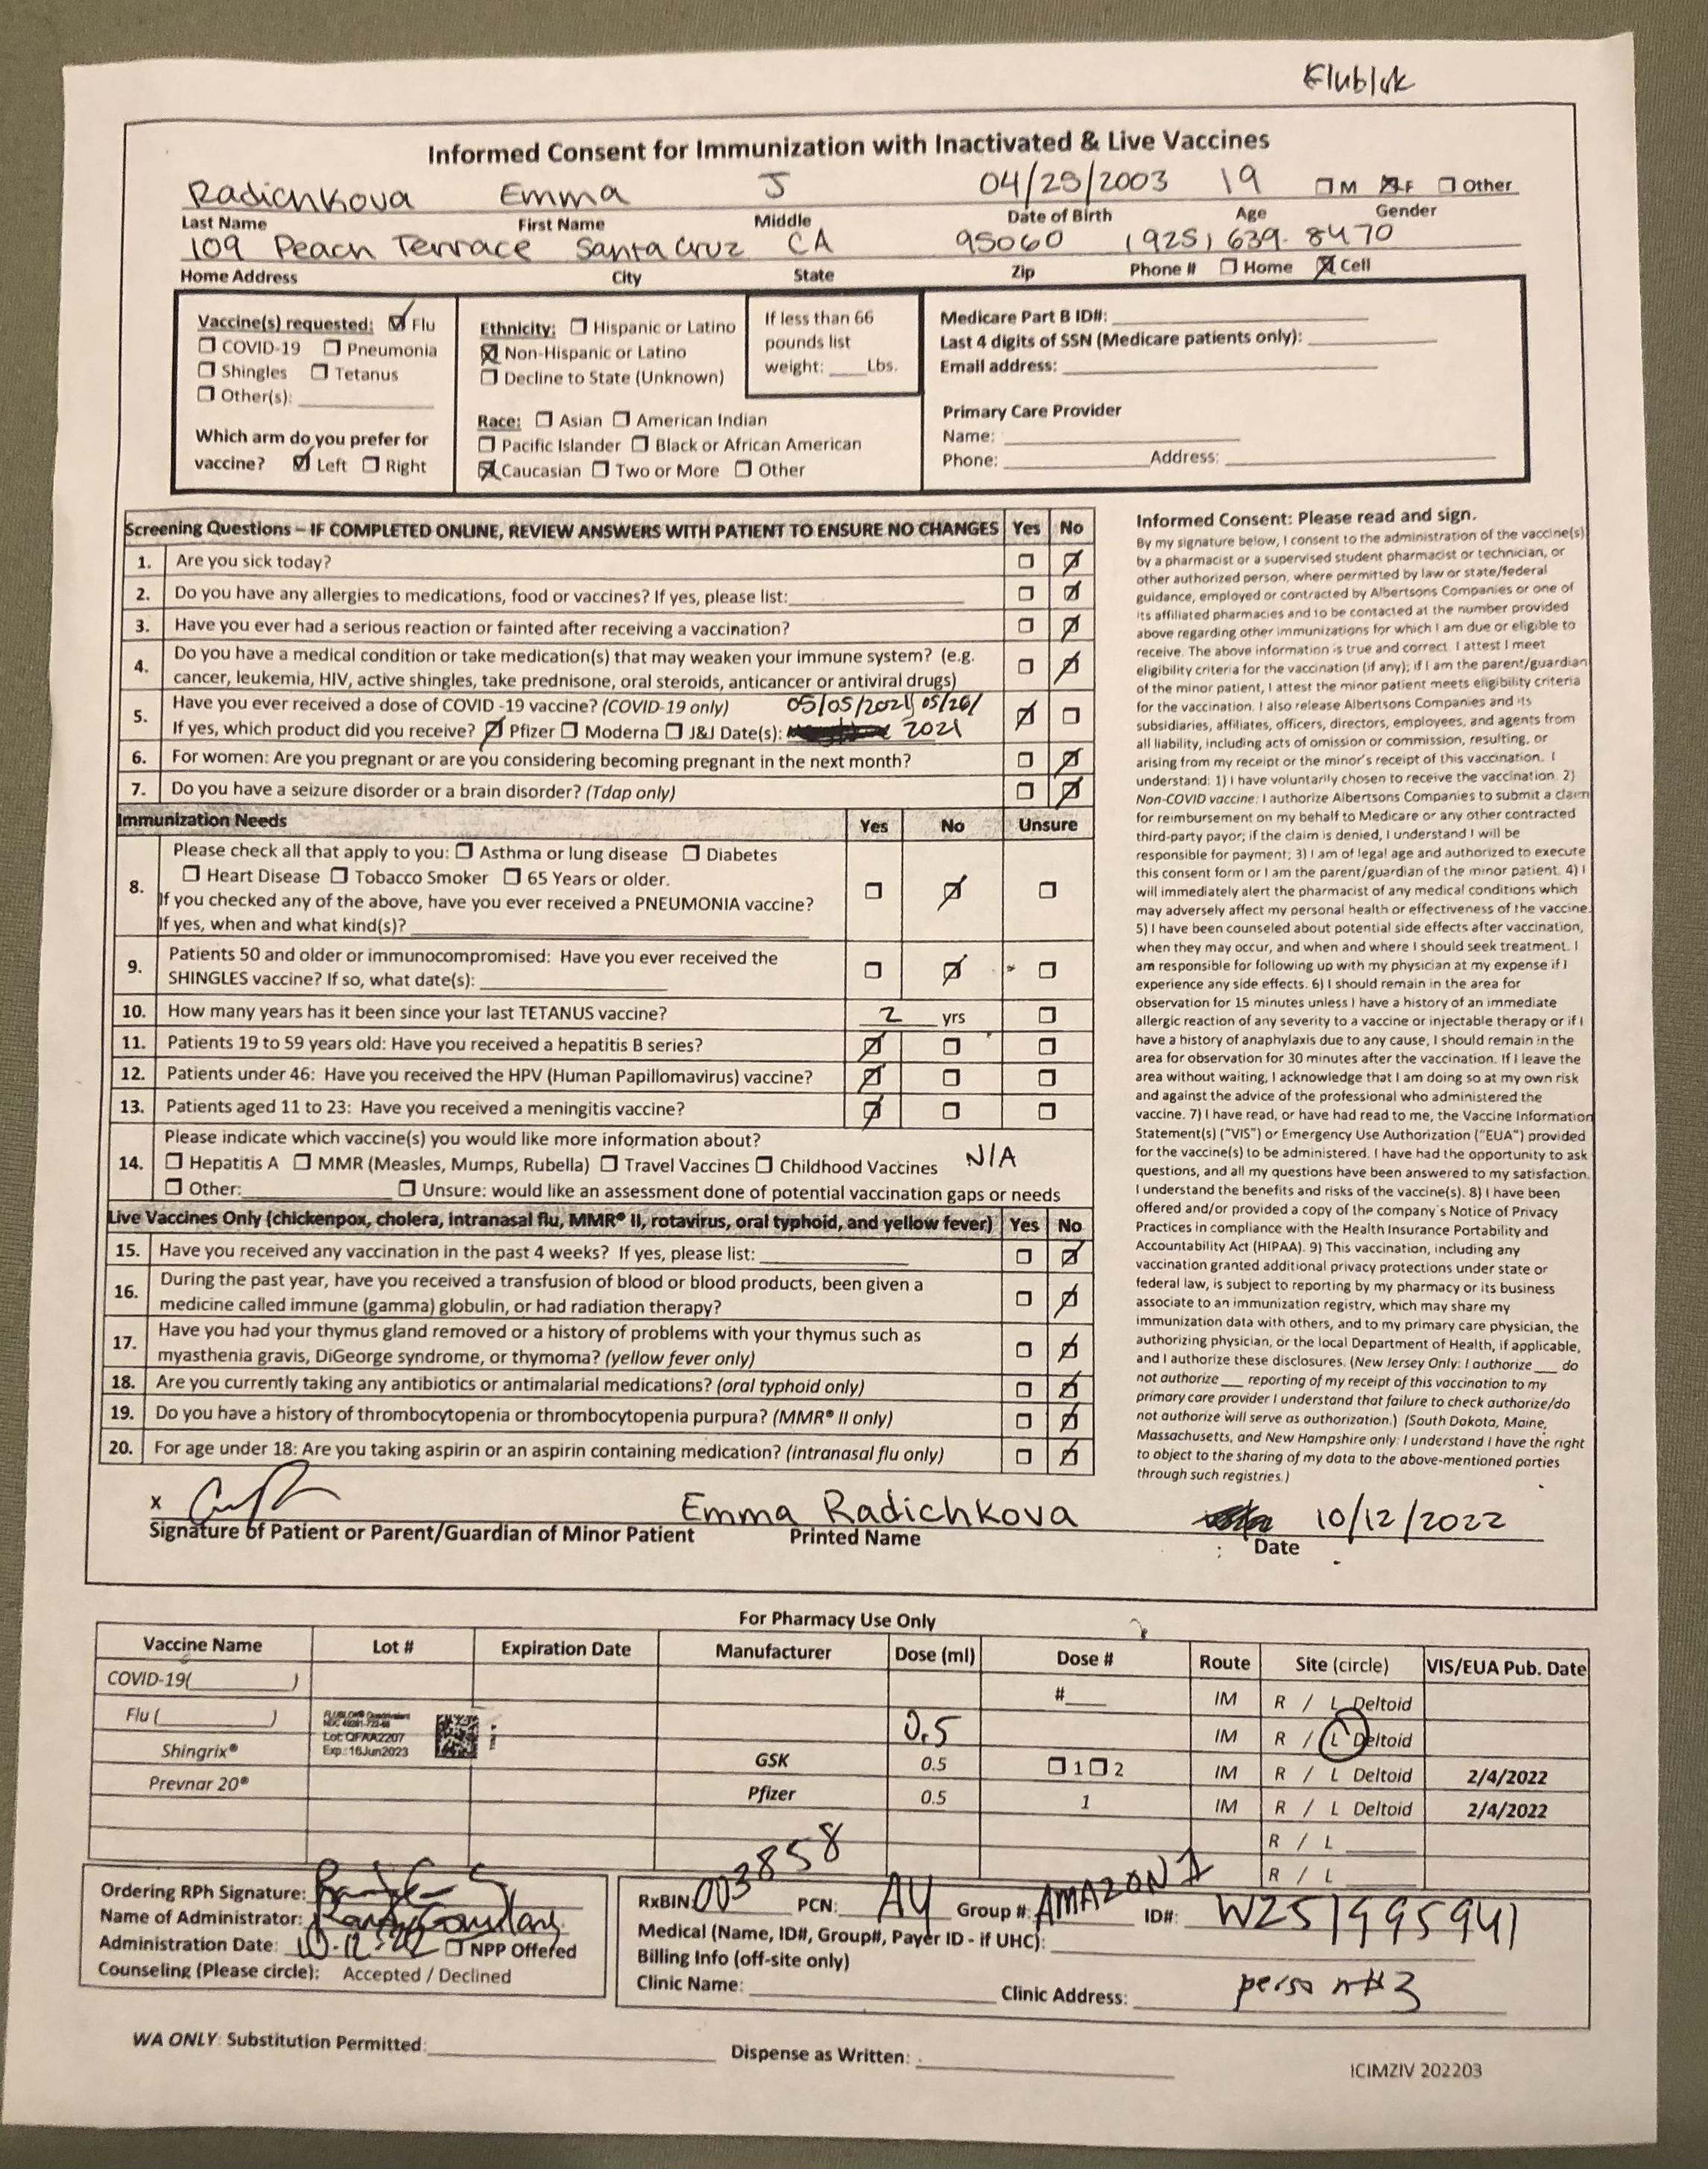 Flublok
Informed Consent for Immunization with Inactivated & Live Vaccines
Radichkova Emma J 04/25/2003 19 ☐ M ☒ F ☐ Other
Last Name First Name Middle Date of Birth Age Gender
109 Peach Terrace Santa Cruz CA 95060 (925) 639-8470
Home Address City State Zip Phone # ☐ Home ☒ Cell
Vaccine(s) requested: ☑ Flu
☐ COVID-19 ☐ Pneumonia
☐ Shingles ☐ Tetanus
☐ Other(s):
Which arm do you prefer for
vaccine? ☑ Left ☐ Right
Ethnicity: ☐ Hispanic or Latino
☒ Non-Hispanic or Latino
☐ Decline to State (Unknown)
If less than 66
pounds list
weight: ____ Lbs.
Race: ☐ Asian ☐ American Indian
☐ Pacific Islander ☐ Black or African American
☒ Caucasian ☐ Two or More ☐ Other
Medicare Part B ID#:
Last 4 digits of SSN (Medicare patients only):
Email address:
Primary Care Provider
Name:
Phone: Address:
Screening Questions – IF COMPLETED ONLINE, REVIEW ANSWERS WITH PATIENT TO ENSURE NO CHANGES Yes No
1. Are you sick today? ☐ ☑
2. Do you have any allergies to medications, food or vaccines? If yes, please list: ☐ ☑
3. Have you ever had a serious reaction or fainted after receiving a vaccination? ☐ ☑
4. Do you have a medical condition or take medication(s) that may weaken your immune system? (e.g.
cancer, leukemia, HIV, active shingles, take prednisone, oral steroids, anticancer or antiviral drugs) ☐ ☑
5. Have you ever received a dose of COVID -19 vaccine? (COVID-19 only) 05/05/2021, 05/26/
If yes, which product did you receive? ☑ Pfizer ☐ Moderna ☐ J&J Date(s): 2021 ☑ ☐
6. For women: Are you pregnant or are you considering becoming pregnant in the next month? ☐ ☑
7. Do you have a seizure disorder or a brain disorder? (Tdap only) ☐ ☑
Immunization Needs Yes No Unsure
8. Please check all that apply to you: ☐ Asthma or lung disease ☐ Diabetes
☐ Heart Disease ☐ Tobacco Smoker ☐ 65 Years or older.
If you checked any of the above, have you ever received a PNEUMONIA vaccine? ☐ ☑ ☐
If yes, when and what kind(s)?
9. Patients 50 and older or immunocompromised: Have you ever received the
SHINGLES vaccine? If so, what date(s): ☐ ☑ ☐
10. How many years has it been since your last TETANUS vaccine? 2 yrs ☐
11. Patients 19 to 59 years old: Have you received a hepatitis B series? ☑ ☐ ☐
12. Patients under 46: Have you received the HPV (Human Papillomavirus) vaccine? ☑ ☐ ☐
13. Patients aged 11 to 23: Have you received a meningitis vaccine? ☑ ☐ ☐
14. Please indicate which vaccine(s) you would like more information about?
☐ Hepatitis A ☐ MMR (Measles, Mumps, Rubella) ☐ Travel Vaccines ☐ Childhood Vaccines N/A
☐ Other: ☐ Unsure: would like an assessment done of potential vaccination gaps or needs
Live Vaccines Only (chickenpox, cholera, intranasal flu, MMR® II, rotavirus, oral typhoid, and yellow fever) Yes No
15. Have you received any vaccination in the past 4 weeks? If yes, please list: ☐ ☑
16. During the past year, have you received a transfusion of blood or blood products, been given a
medicine called immune (gamma) globulin, or had radiation therapy? ☐ ☑
17. Have you had your thymus gland removed or a history of problems with your thymus such as
myasthenia gravis, DiGeorge syndrome, or thymoma? (yellow fever only) ☐ ☑
18. Are you currently taking any antibiotics or antimalarial medications? (oral typhoid only) ☐ ☑
19. Do you have a history of thrombocytopenia or thrombocytopenia purpura? (MMR® II only) ☐ ☑
20. For age under 18: Are you taking aspirin or an aspirin containing medication? (intranasal flu only) ☐ ☑
Informed Consent: Please read and sign.
By my signature below, I consent to the administration of the vaccine(s)
by a pharmacist or a supervised student pharmacist or technician, or
other authorized person, where permitted by law or state/federal
guidance, employed or contracted by Albertsons Companies or one of
its affiliated pharmacies and to be contacted at the number provided
above regarding other immunizations for which I am due or eligible to
receive. The above information is true and correct. I attest I meet
eligibility criteria for the vaccination (if any); if I am the parent/guardian
of the minor patient, I attest the minor patient meets eligibility criteria
for the vaccination. I also release Albertsons Companies and its
subsidiaries, affiliates, officers, directors, employees, and agents from
all liability, including acts of omission or commission, resulting, or
arising from my receipt or the minor's receipt of this vaccination. I
understand: 1) I have voluntarily chosen to receive the vaccination. 2)
Non-COVID vaccine: I authorize Albertsons Companies to submit a claim
for reimbursement on my behalf to Medicare or any other contracted
third-party payor; if the claim is denied, I understand I will be
responsible for payment; 3) I am of legal age and authorized to execute
this consent form or I am the parent/guardian of the minor patient. 4) I
will immediately alert the pharmacist of any medical conditions which
may adversely affect my personal health or effectiveness of the vaccine.
5) I have been counseled about potential side effects after vaccination,
when they may occur, and when and where I should seek treatment. I
am responsible for following up with my physician at my expense if I
experience any side effects. 6) I should remain in the area for
observation for 15 minutes unless I have a history of an immediate
allergic reaction of any severity to a vaccine or injectable therapy or if I
have a history of anaphylaxis due to any cause, I should remain in the
area for observation for 30 minutes after the vaccination. If I leave the
area without waiting, I acknowledge that I am doing so at my own risk
and against the advice of the professional who administered the
vaccine. 7) I have read, or have had read to me, the Vaccine Information
Statement(s) ("VIS") or Emergency Use Authorization ("EUA") provided
for the vaccine(s) to be administered. I have had the opportunity to ask
questions, and all my questions have been answered to my satisfaction.
I understand the benefits and risks of the vaccine(s). 8) I have been
offered and/or provided a copy of the company's Notice of Privacy
Practices in compliance with the Health Insurance Portability and
Accountability Act (HIPAA). 9) This vaccination, including any
vaccination granted additional privacy protections under state or
federal law, is subject to reporting by my pharmacy or its business
associate to an immunization registry, which may share my
immunization data with others, and to my primary care physician, the
authorizing physician, or the local Department of Health, if applicable,
and I authorize these disclosures. (New Jersey Only: I authorize ___ do
not authorize ___ reporting of my receipt of this vaccination to my
primary care provider I understand that failure to check authorize/do
not authorize will serve as authorization.) (South Dakota, Maine,
Massachusetts, and New Hampshire only: I understand I have the right
to object to the sharing of my data to the above-mentioned parties
through such registries.)
x Emma Radichkova 10/12/2022
Signature of Patient or Parent/Guardian of Minor Patient Printed Name Date
For Pharmacy Use Only
Vaccine Name Lot # Expiration Date Manufacturer Dose (ml) Dose # Route Site (circle) VIS/EUA Pub. Date
COVID-19( ) #___ IM R / L Deltoid
Flu ( ) FLUBLOK® Quadrivalent
NDC 49281-722-88
Lot: QFAA2207
Exp.:16Jun2023
0.5 IM R / L Deltoid
Shingrix® GSK 0.5 ☐ 1 ☐ 2 IM R / L Deltoid 2/4/2022
Prevnar 20® Pfizer 0.5 1 IM R / L Deltoid 2/4/2022
R / L
R / L
Ordering RPh Signature:
Name of Administrator:
Administration Date: ☐ NPP Offered
Counseling (Please circle): Accepted / Declined
RxBIN: 003858 PCN: A4 Group #: AMAZON1 ID#: W251995941
Medical (Name, ID#, Group#, Payer ID - if UHC):
Billing Info (off-site only)
Clinic Name: Clinic Address: person #3
WA ONLY: Substitution Permitted: Dispense as Written:
ICIMZIV 202203